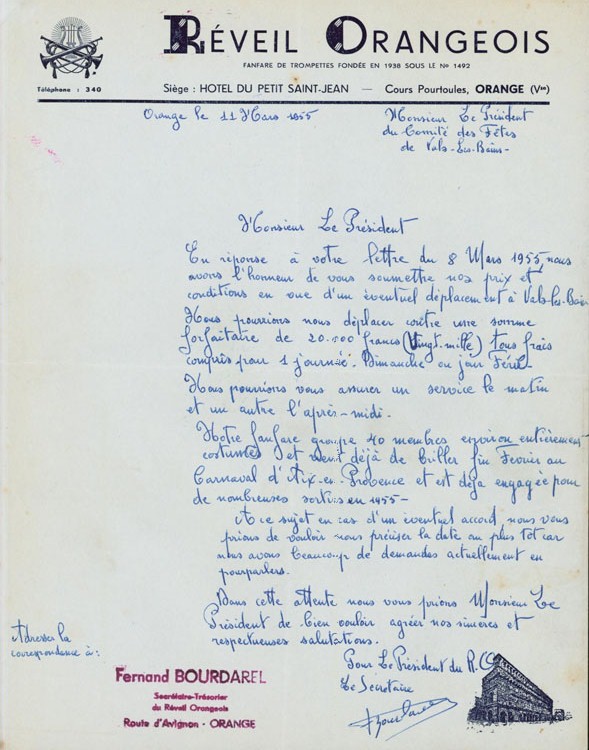 RÉVEIL ORANGEOIS
FANFARE DE TROMPETTES FONDÉE EN 1938 SOUS LE No 1492
Téléphone : 340
Siège : HOTEL DU PETIT SAINT-JEAN — Cours Pourtoules, ORANGE (Vse)
Orange le 11 Mars 1955
Monsieur Le Président
du Comité des Fêtes
de Vals-Les-Bains-
Monsieur Le Président
En réponse à votre lettre du 8 Mars 1955, nous
avons l'honneur de vous soumettre nos prix et
conditions en vue d'un éventuel déplacement à Vals-les-Bains
Nous pourrions nous déplacer contre une somme
forfaitaire de 20.000 francs (Vingt-mille) tous frais
compris pour 1 journée. Dimanche ou jour Férié-
Nous pourrions vous assurer un service le matin
et un autre l'après-midi.
Notre fanfare groupe 40 membres environ entièrement
costumés et vient déjà de briller fin Fevrier au
Carnaval d'Aix-en-Provence et est déjà engagée pour
de nombreuses sorties en 1955-
A ce sujet en cas d'un éventuel accord, nous vous
prions de vouloir nous préciser la date au plus tôt car
nous avons beaucoup de demandes actuellement en
pourparlers.
Dans cette attente nous vous prions Monsieur Le
Président de bien vouloir agréer nos sincères et
respectueuses salutations.
Adresser la
correspondance à :
Pour Le Président du R.O
Le Secrétaire
Fernand BOURDAREL
Secrétaire-Trésorier
du Réveil Orangeois
Route d'Avignon - ORANGE
Bourdarel